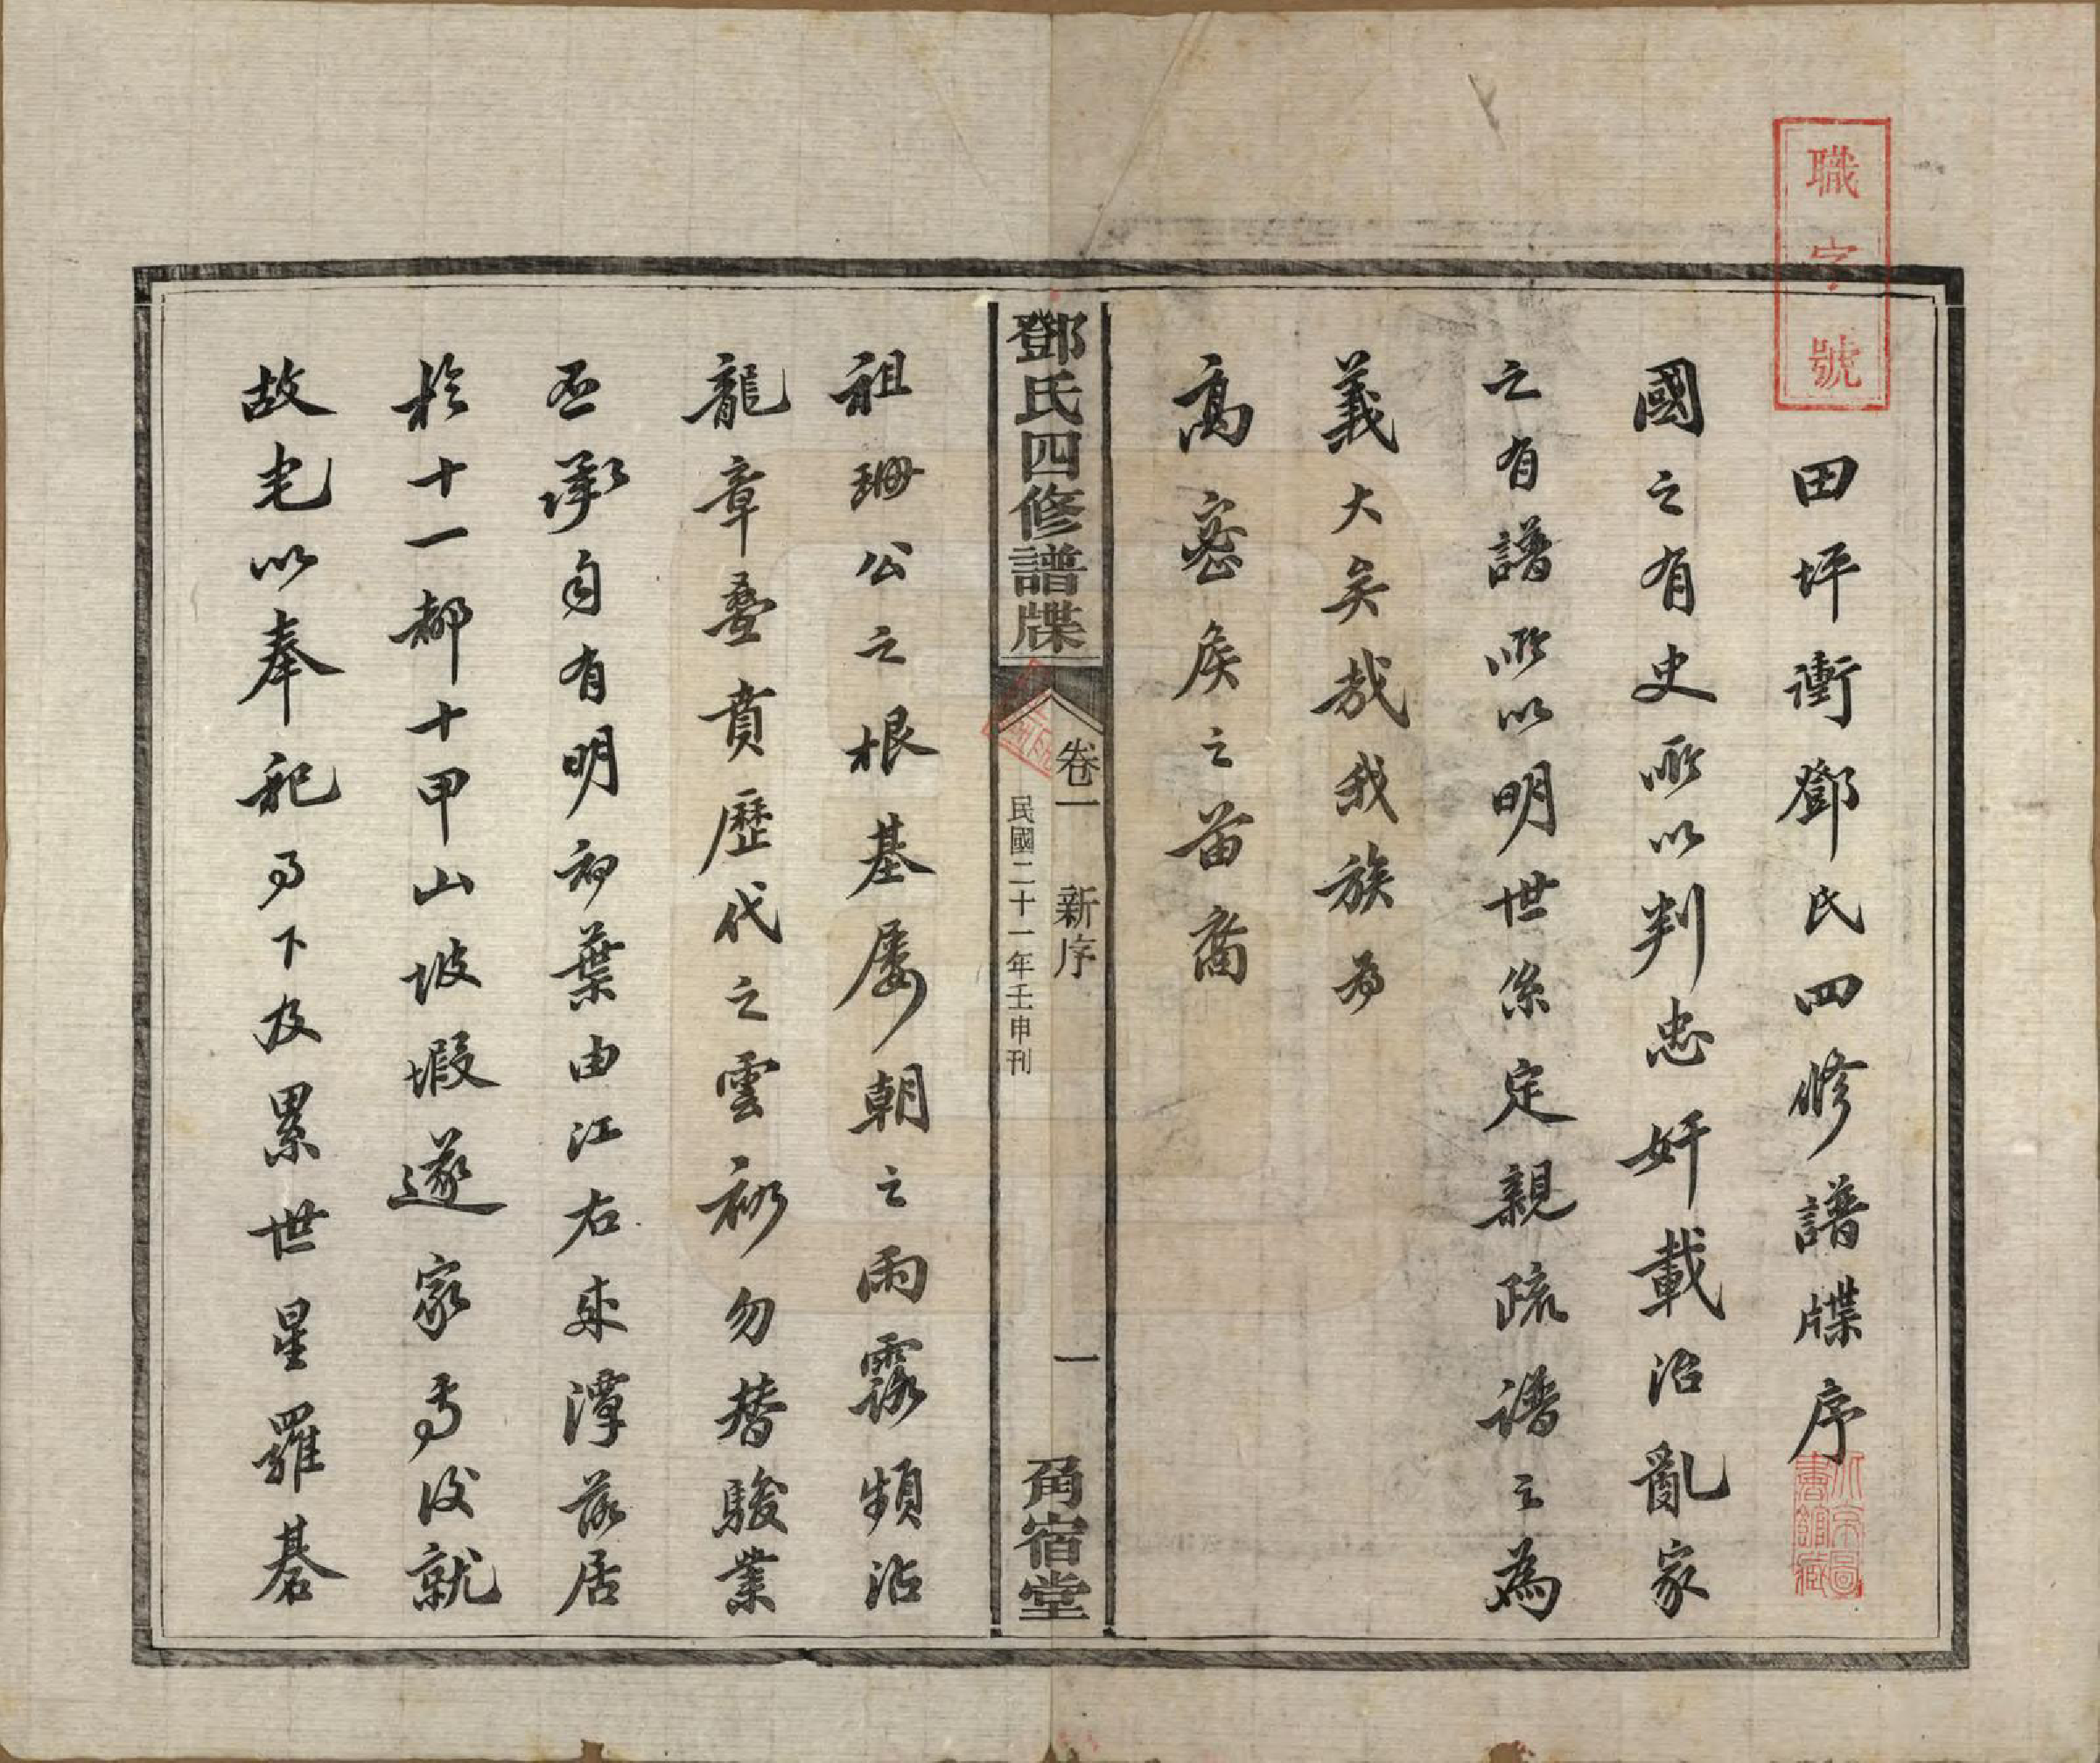 職字號
田坪衝鄧氏四修譜牒序
國之有史所以判忠奸載治亂家
之有譜所以明世系定親疏譜之為
義大矣哉我族為
高密侯之苗裔
鄧氏四修譜牒
卷一 新序 一
民國二十一年壬申刊
角宿堂
祖珊公之根基屡朝之雨露頻沾
龍章疊賁歷代之雲礽勿替駿業
丕承自有明初葉由江右來潭落居
於十一都十甲山坡塅遂家焉後就
故宅以奉祀而下及累世星羅碁